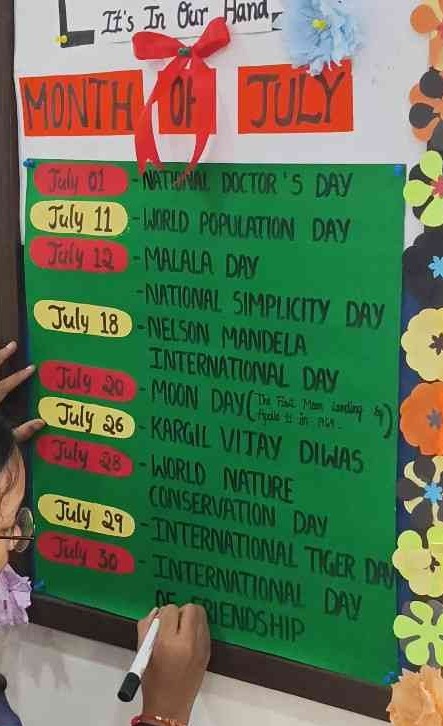 It's In Our Hand
MONTH OF JULY
July 01 - NATIONAL DOCTOR'S DAY
July 11 - WORLD POPULATION DAY
July 12 - MALALA DAY
- NATIONAL SIMPLICITY DAY
July 18 - NELSON MANDELA
INTERNATIONAL DAY
July 20 - MOON DAY (The First Moon Landing by
Apollo 11 in 1969.)
July 26 - KARGIL VIJAY DIWAS
July 28 - WORLD NATURE
CONSERVATION DAY
July 29 - INTERNATIONAL TIGER DAY
July 30 - INTERNATIONAL DAY
OF FRIENDSHIP